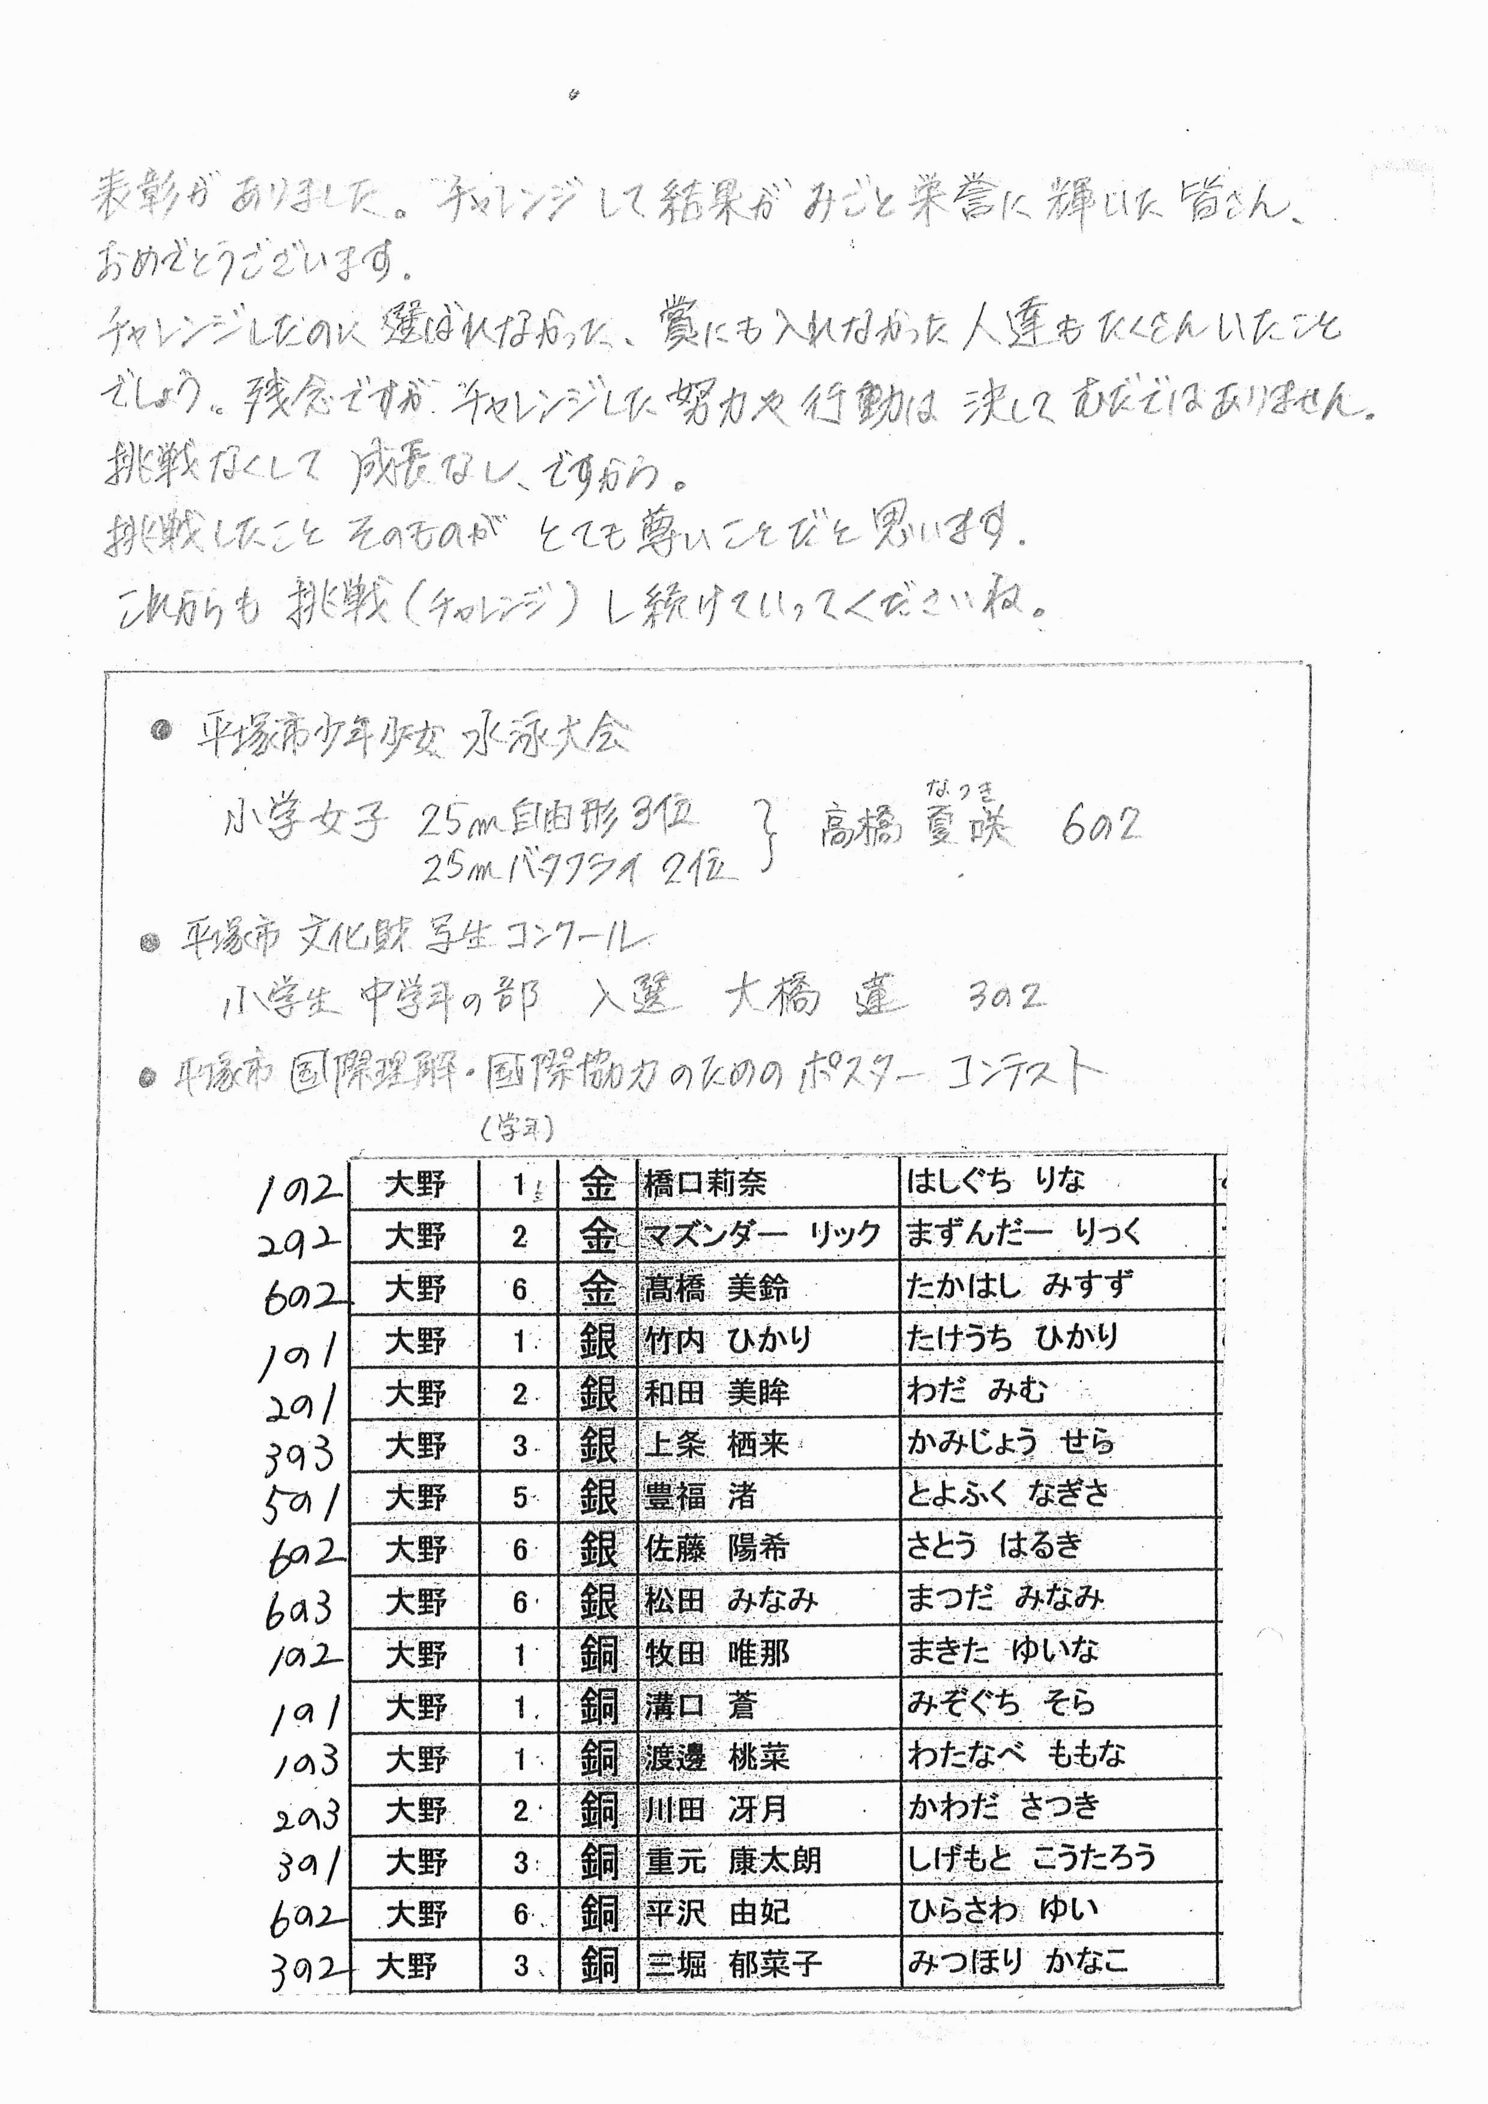 表彰がありました。チャレンジして結果がみごと栄誉に輝いた皆さん、
おめでとうございます。
チャレンジしたのに選ばれなかった、賞にも入れなかった人達もたくさんいたこと
でしょう。残念ですが、チャレンジした努力や行動は決してむだではありません。
挑戦なくして成長なし、ですから。
挑戦したことそのものがとても尊いことだと思います。
これからも挑戦(チャレンジ)し続けていってくださいね。
● 平塚市少年少女水泳大会
なつき
小学女子 25m自由形3位 } 高橋 夏咲 6の2
25mバタフライ 2位
● 平塚市文化財写生コンクール
小学生 中学年の部 入選 大橋 蓮 3の2
● 平塚市国際理解・国際協力のためのポスターコンテスト
(学年)
1の2 大野 1 金 橋口莉奈 はしぐち りな
2の2 大野 2 金 マズンダー リック まずんだー りっく
6の2 大野 6 金 髙橋 美鈴 たかはし みすず
1の1 大野 1 銀 竹内 ひかり たけうち ひかり
2の1 大野 2 銀 和田 美眸 わだ みむ
3の3 大野 3 銀 上条 栖来 かみじょう せら
5の1 大野 5 銀 豊福 渚 とよふく なぎさ
6の2 大野 6 銀 佐藤 陽希 さとう はるき
6の3 大野 6 銀 松田 みなみ まつだ みなみ
1の2 大野 1 銅 牧田 唯那 まきた ゆいな
1の1 大野 1 銅 溝口 蒼 みぞぐち そら
1の3 大野 1 銅 渡邊 桃菜 わたなべ ももな
2の3 大野 2 銅 川田 冴月 かわだ さつき
3の1 大野 3 銅 重元 康太朗 しげもと こうたろう
6の2 大野 6 銅 平沢 由妃 ひらさわ ゆい
3の2 大野 3 銅 三堀 郁菜子 みつほり かなこ